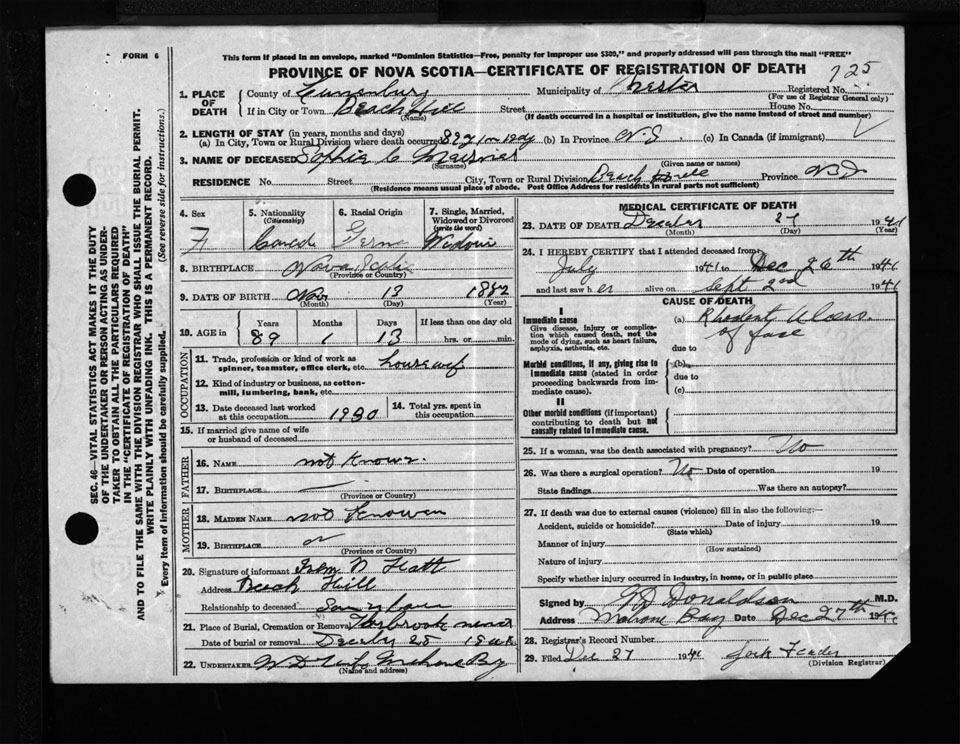 FORM 6
This form if placed in an envelope, marked "Dominion Statistics—Free, penalty for improper use $300," and properly addressed will pass through the mail "FREE"
PROVINCE OF NOVA SCOTIA—CERTIFICATE OF REGISTRATION OF DEATH
125
1. PLACE OF DEATH
County of Lunenburg Municipality of Chester Registered No.
(For use of Registrar General only)
If in City or Town Beach Hill Street House No.
(Name) (If death occurred in a hospital or institution, give the name instead of street and number)
2. LENGTH OF STAY (in years, months and days)
(a) In City, Town or Rural Division where death occurred (b) In Province N.S (c) In Canada (if immigrant)
3. NAME OF DECEASED Sophia C
(Surname) (Given name or names)
RESIDENCE No. Street City, Town or Rural Division Beach Hill Province
(Residence means usual place of abode. Post Office Address for residents in rural parts not sufficient)
4. Sex
F
5. Nationality
(Citizenship)
6. Racial Origin
Germ
7. Single, Married, Widowed or Divorced
(write the word)
8. BIRTHPLACE Nova Scotia
(Province or Country)
9. DATE OF BIRTH Nov 13
(Month) (Day) (Year)
10. AGE in
Years Months Days If less than one day old
89 1 13 hrs. or min.
OCCUPATION
11. Trade, profession or kind of work as spinner, teamster, office clerk, etc. housewf
12. Kind of industry or business, as cotton-mill, lumbering, bank, etc.
13. Date deceased last worked at this occupation 1930
14. Total yrs. spent in this occupation
15. If married give name of wife or husband of deceased
FATHER
16. NAME not
17. BIRTHPLACE
(Province or Country)
MOTHER
18. MAIDEN NAME not
19. BIRTHPLACE
(Province or Country)
20. Signature of informant
Address Beach Hill
Relationship to deceased
21. Place of Burial, Cremation or Removal
Date of burial or removal
22. UNDERTAKER
(Name and address)
MEDICAL CERTIFICATE OF DEATH
23. DATE OF DEATH 27 1941
(Month) (Day) (Year)
24. I HEREBY CERTIFY that I attended deceased from
July 1941 to Dec 26th 1941
and last saw her alive on Sept 2nd 1941
CAUSE OF DEATH
I
Immediate cause
Give disease, injury or complication which caused death, not the mode of dying, such as heart failure, asphyxia, asthenia, etc.
(a)
of face
due to
Morbid conditions, if any, giving rise to immediate cause (stated in order proceeding backwards from immediate cause).
(b)
due to
(c)
II
Other morbid conditions (if important) contributing to death but not causally related to immediate cause.
25. If a woman, was the death associated with pregnancy? No
26. Was there a surgical operation? No Date of operation 19
State findings Was there an autopsy?
27. If death was due to external causes (violence) fill in also the following:—
Accident, suicide or homicide? Date of injury 19
(State which)
Manner of injury
(How sustained)
Nature of injury
Specify whether injury occurred in industry, in home, or in public place
Signed by Donaldson M.D.
Address Mahone Bay Date Dec 27th
28. Registrar's Record Number
29. Filed Dec 27
(Division Registrar)
SEC. 46—VITAL STATISTICS ACT MAKES IT THE DUTY OF THE UNDERTAKER OR PERSON ACTING AS UNDERTAKER TO OBTAIN ALL THE PARTICULARS REQUIRED IN THE "CERTIFICATE OF REGISTRATION OF DEATH" AND TO FILE THE SAME WITH THE DIVISION REGISTRAR WHO SHALL ISSUE THE BURIAL PERMIT.
WRITE PLAINLY WITH UNFADING INK. THIS IS A PERMANENT RECORD.
Every item of information should be carefully supplied. (See reverse side for instructions.)